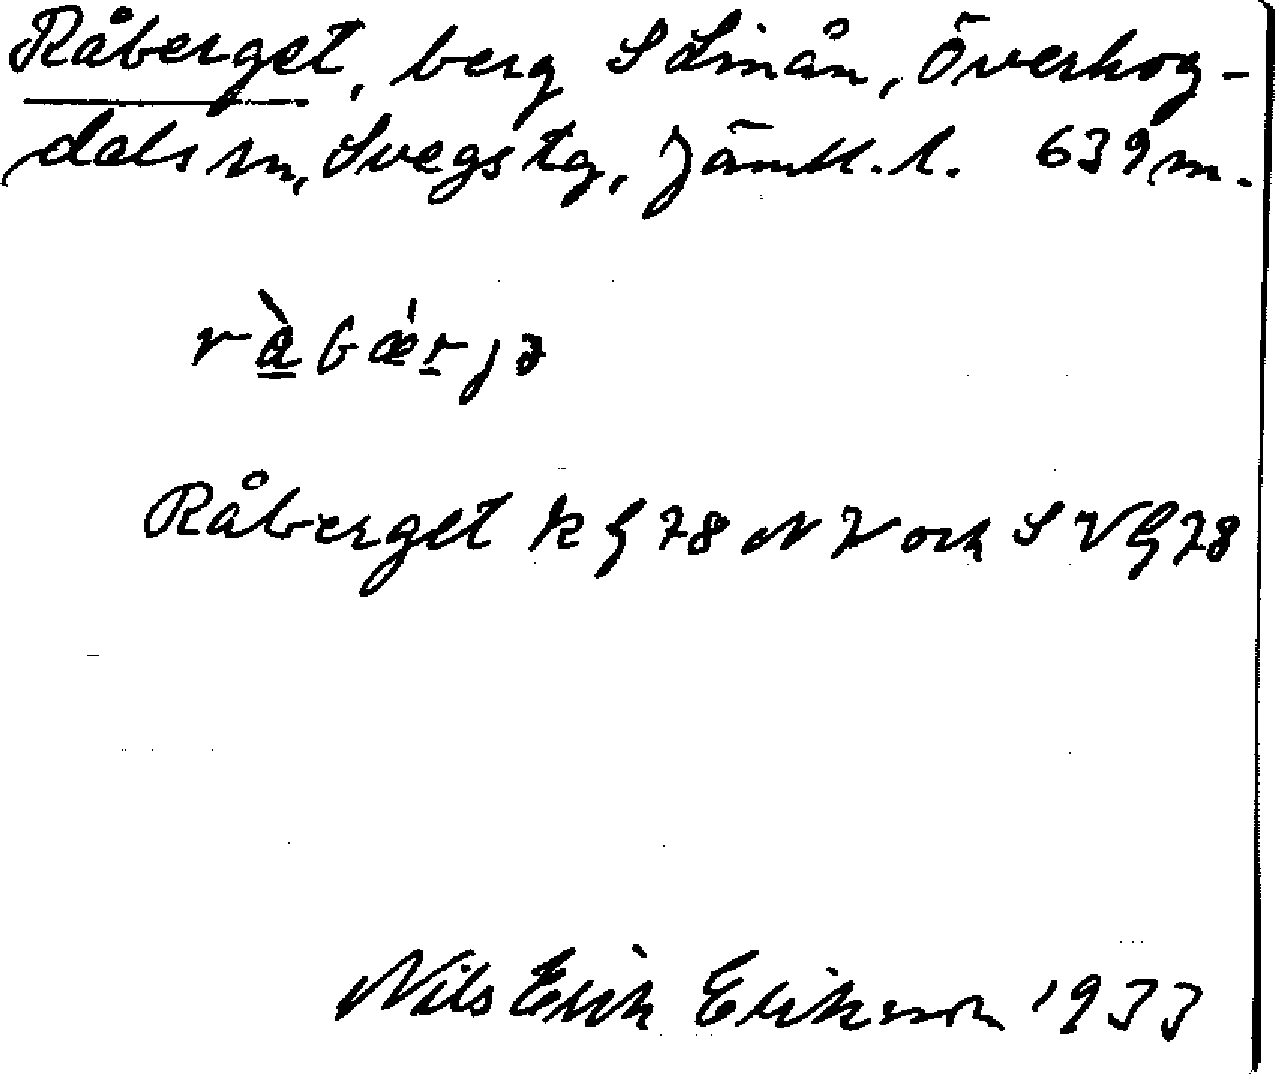 Råberget, berg S Linån, Överhog-
dals sn, Svegs tg, Jämtl. l. 639 m.
ràbǽrjə
Råberget kg 78 NV och SVG 78
Nils Erik Eriksson 1933